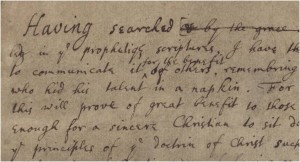 Having searched & by the grace
in yᵉ prophetique scriptures, I have th
for the benefit
to communicate it to others, remembring
who hid his talent in a napkin. For
this will prove of great benefit to those
enough for a sincere Christian to sit do
yᵉ principles of yᵉ doctrin of Christ suc